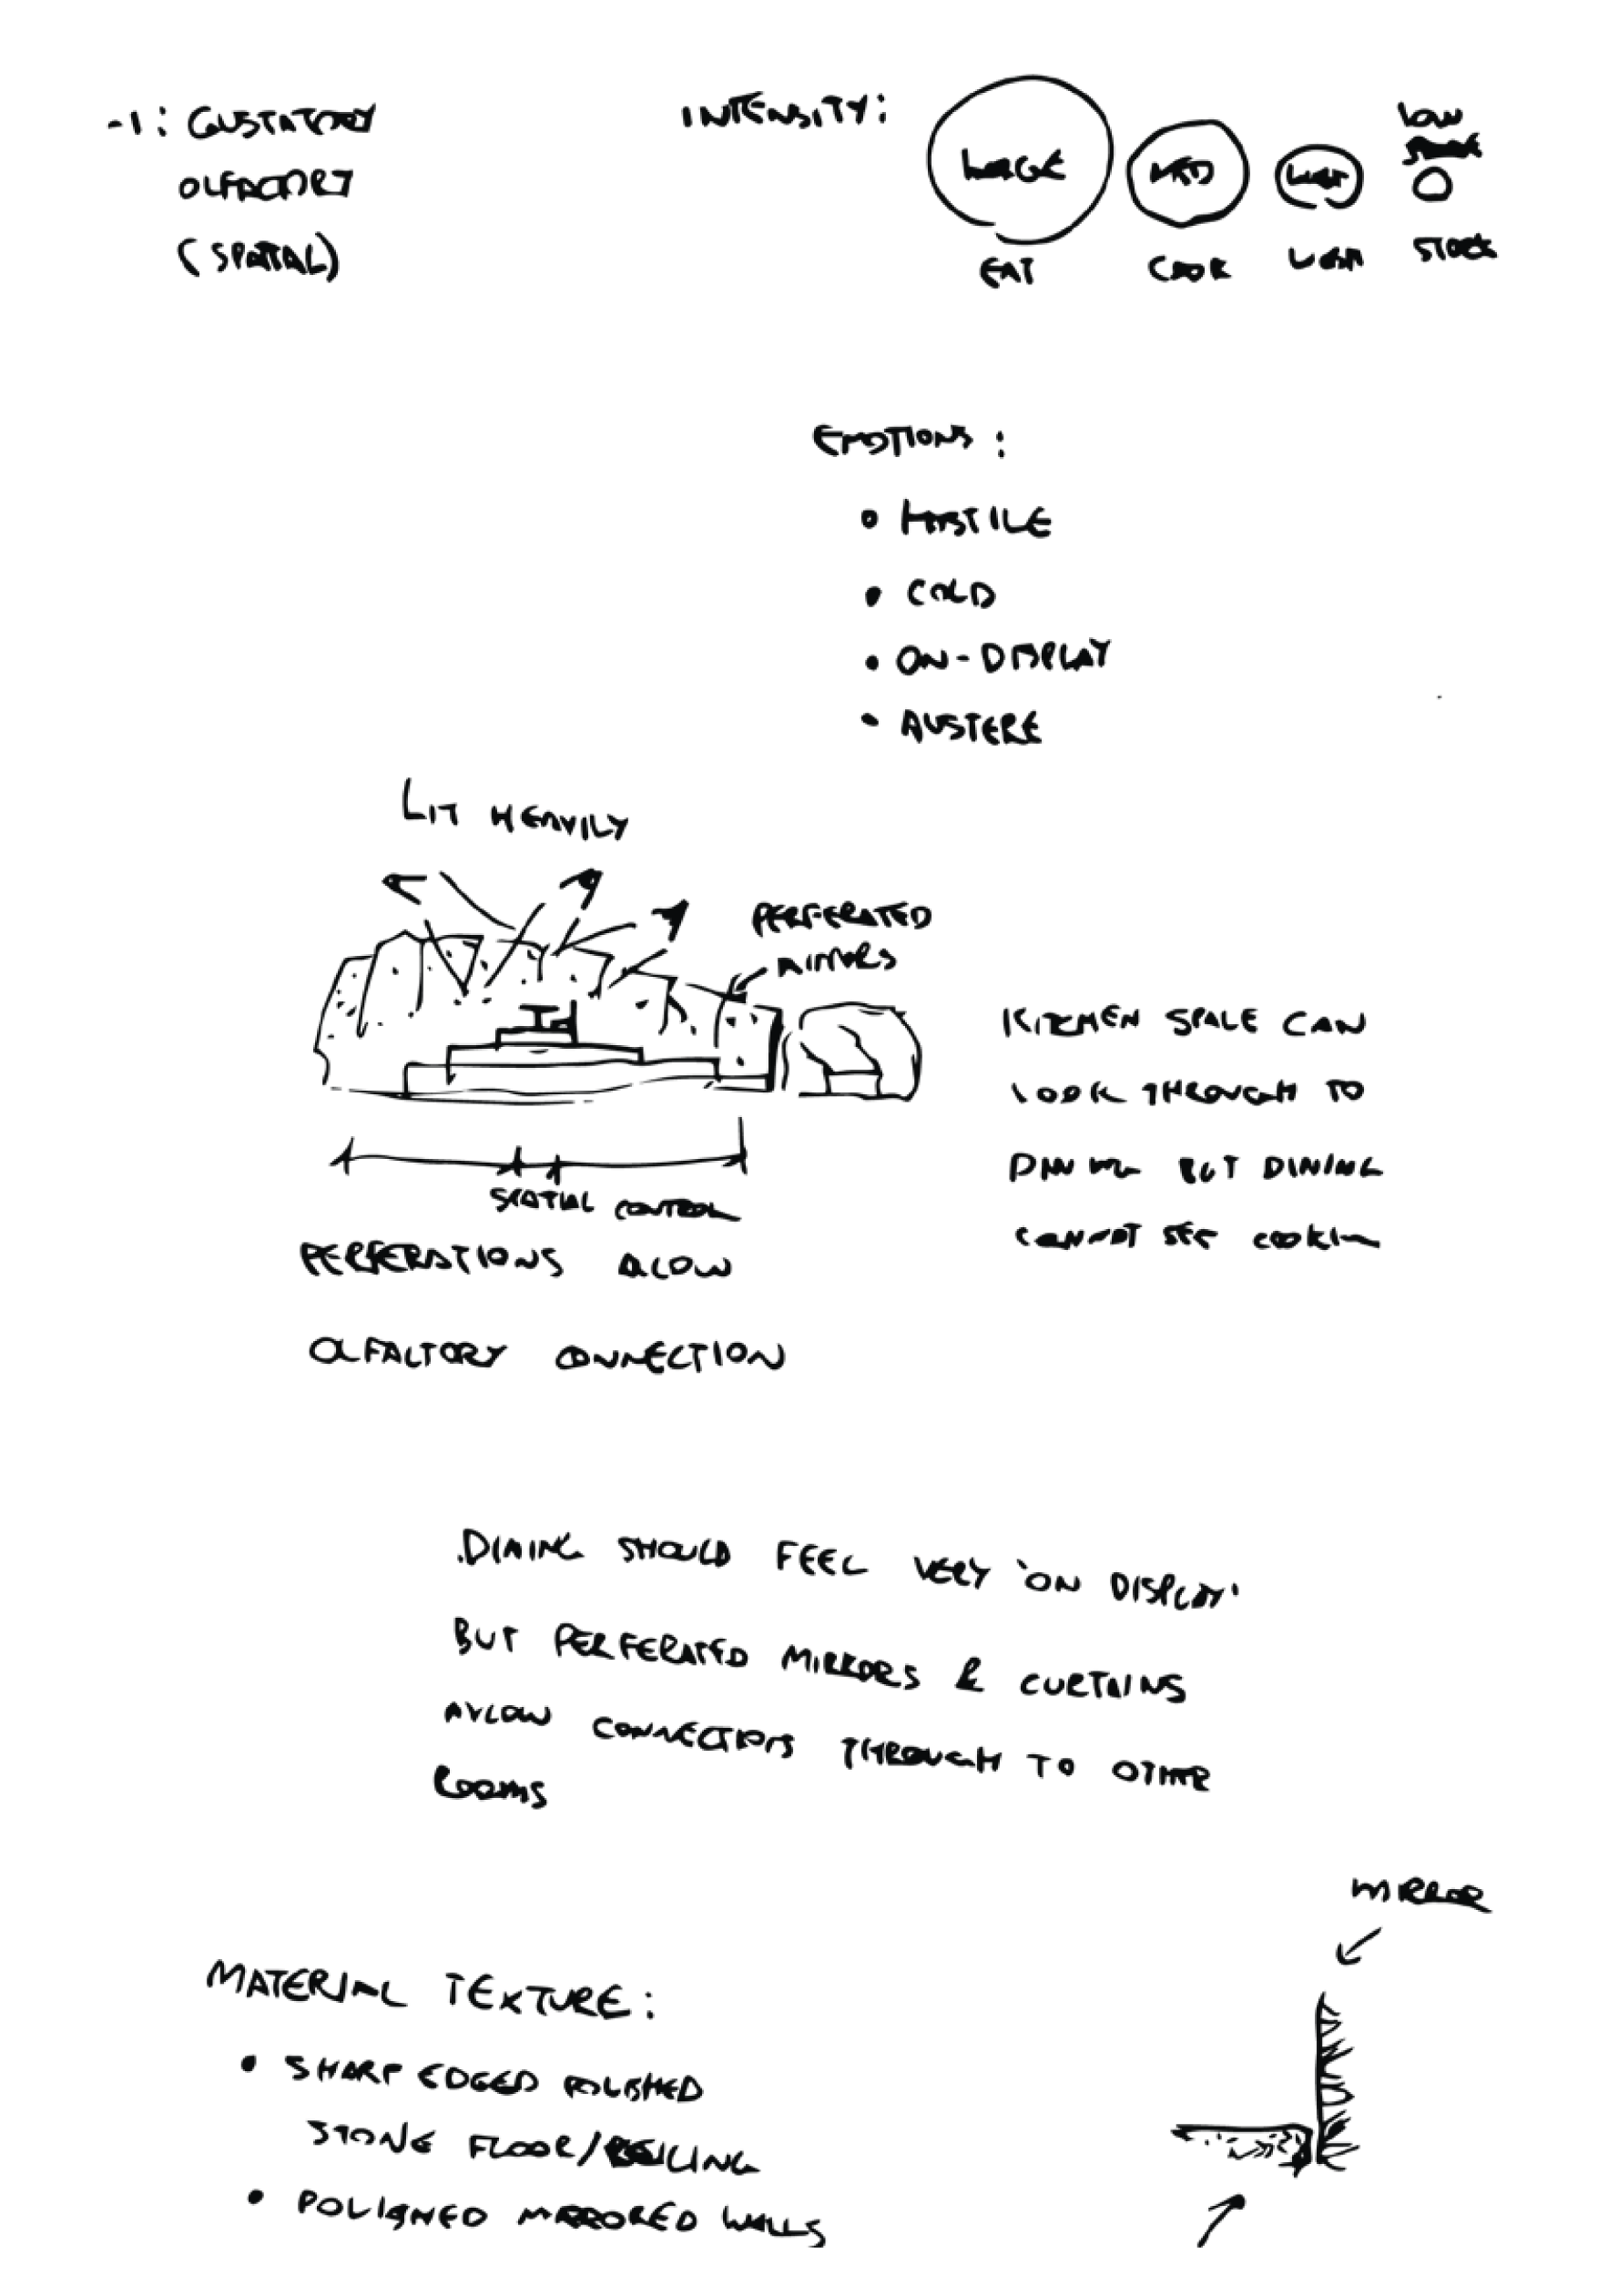 -1: GUSTATORY
OLFACTORY
(SPATIAL)
INTENSITY:
LARGE
MED
LIGHT
LOW
EAT
COOK
STOCK
EMOTIONS:
• HOSTILE
• COLD
• ON-DISPLAY
• AUSTERE
LIT HEAVILY
PERFERATED
MIRRORS
SPATIAL CONTROL
KITCHEN SPACE CAN
LOOK THROUGH TO
DINING BUT DINING
CANNOT SEE COOKIN
PERFERATIONS ALOW
OLFACTORY CONNECTION
.DINING SHOULD FEEL VERY 'ON DISPLAY'
BUT PERFERATED MIRRORS & CURTAINS
ALLOW CONNECTIONS THROUGH TO OTHER
ROOMS
MIRROR
MATERIAL TEXTURE:
• SHARP EDGED POLISHED
STONE FLOOR/CEILING
• POLISHED MIRRORED WALLS